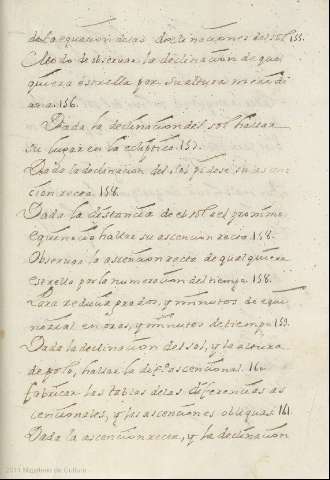 de la equacion de las declinaciones del sol 155.
Modo de observar la declinacion de qual
quiera estrella por su altura meridi
ana. 156.
Dada la declinacion del sol hallar
su lugar en la ecliptica 157.
Dada la declinacion del sol pidese su ascen
cion recta 158.
Dada la distancia de el sol al proximo
equinocio hallar su ascencion recta 158.
Observar la ascencion recta de qualquiera
estrella por la numeracion del tiempo 158.
Para reducir grados, y minutos de equi
noccial en oras, y minutos de tiempo 159.
Dada la declinacion del sol, y la altura
de polo, hallar la dif.ª ascencional. 161
fabricar las tablas de las diferencias as
cencionales, y las ascenciones obliquas. 161.
Dada la ascencion recta, y la declinacion
2011 Ministerio de Cultura